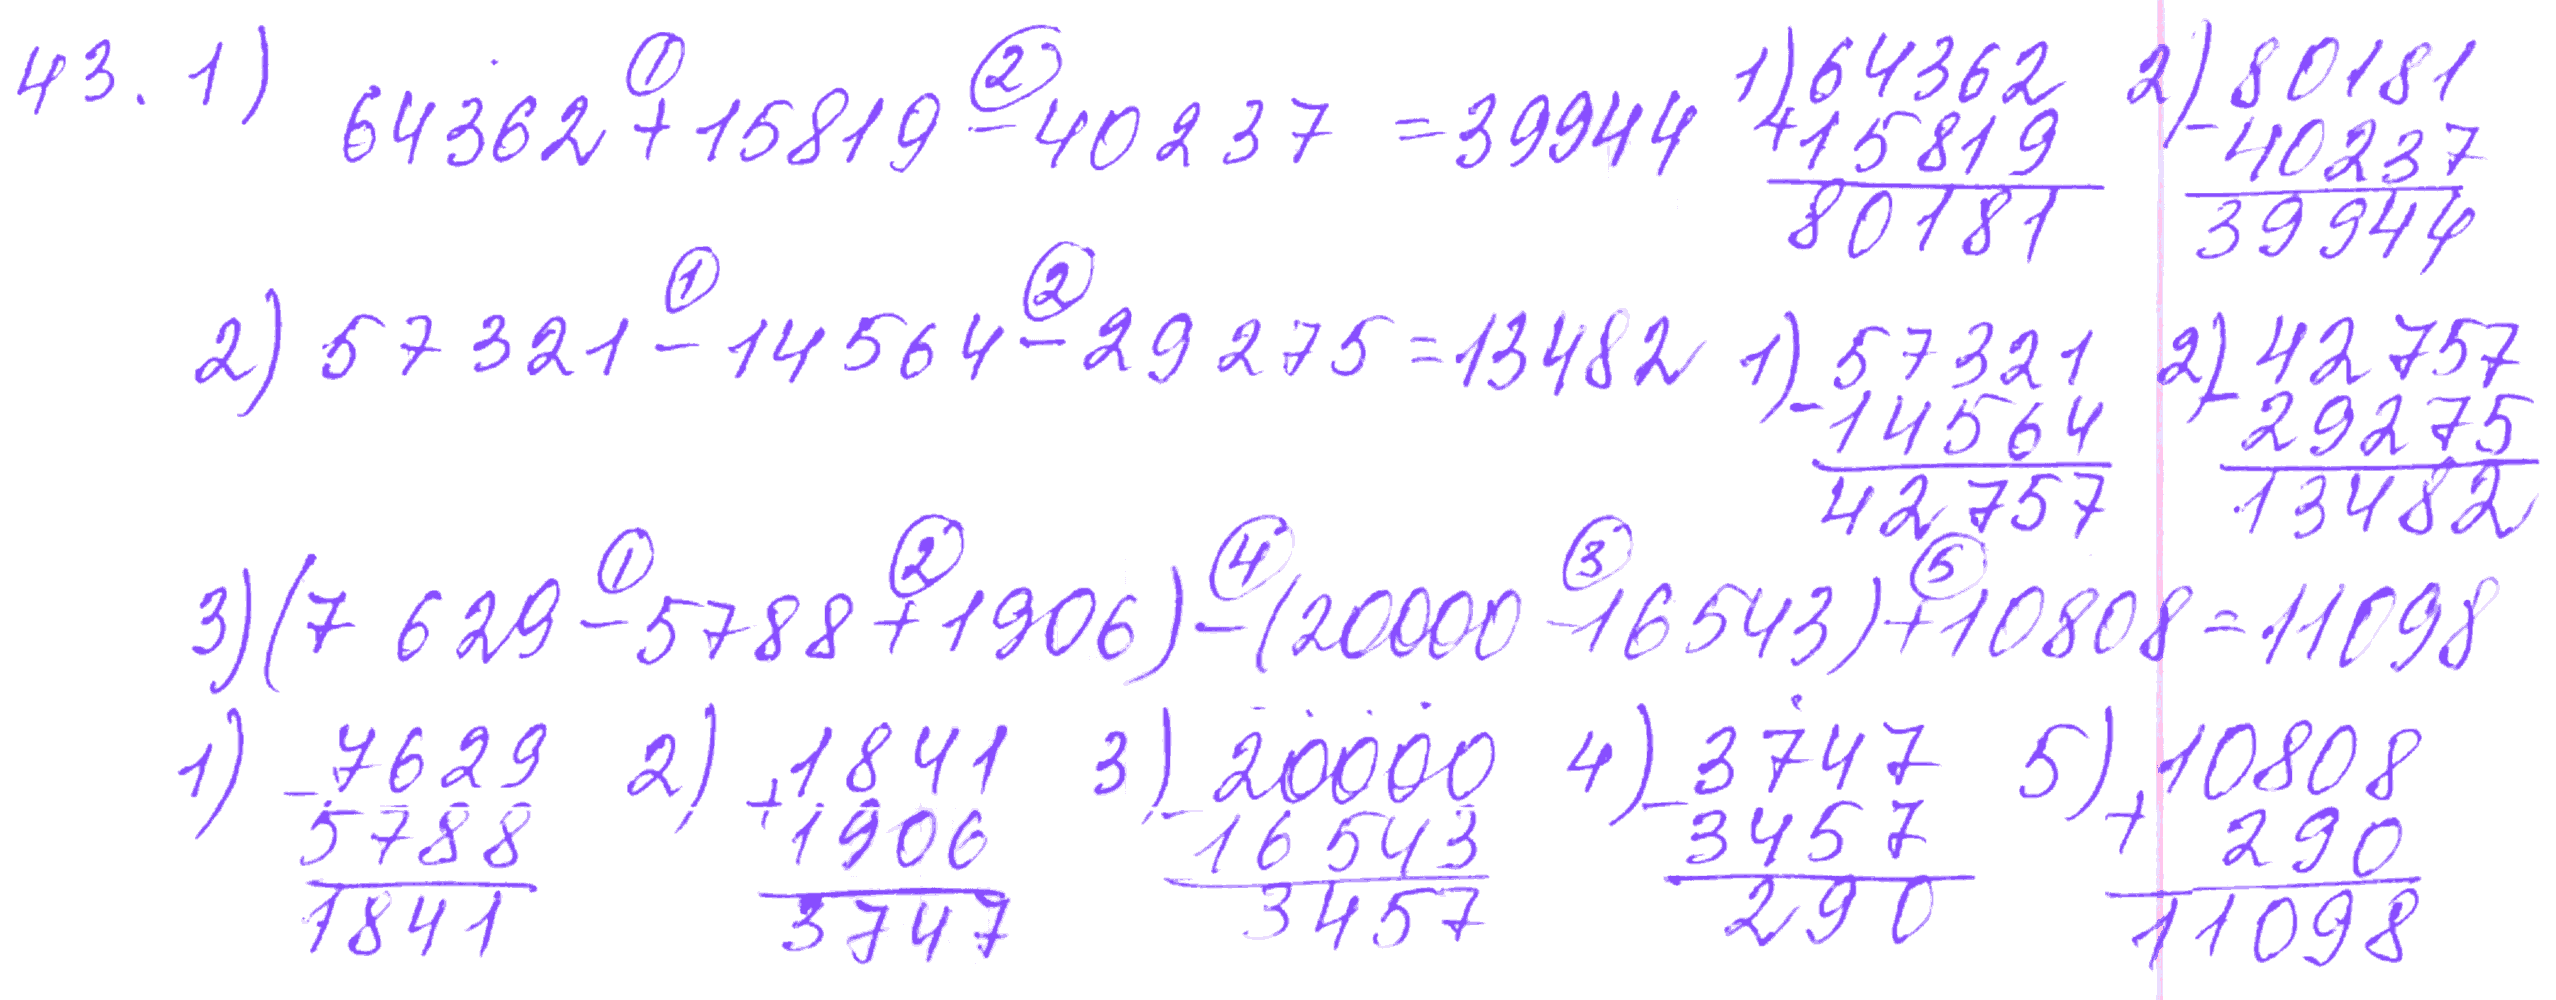 43. 1) 64362 + 15819 - 40237 = 39944
① ②
1) 64362 + 15819 80181
2) 80181 - 40237 39944
2) 57321 - 14564 - 29275 = 13482
① ②
1) 57321 - 14564 42757
2) 42757 - 29275 13482
① ② ④ ③ ⑤
3) (7 629 - 5788 + 1906) - (20000 - 16543) + 10808 = 11098
1) 7629 - 5788 1841
2) 1841 + 1906 3747
3) 20000 - 16543 3457
4) 3747 - 3457 290
5) 10808 + 290 11098